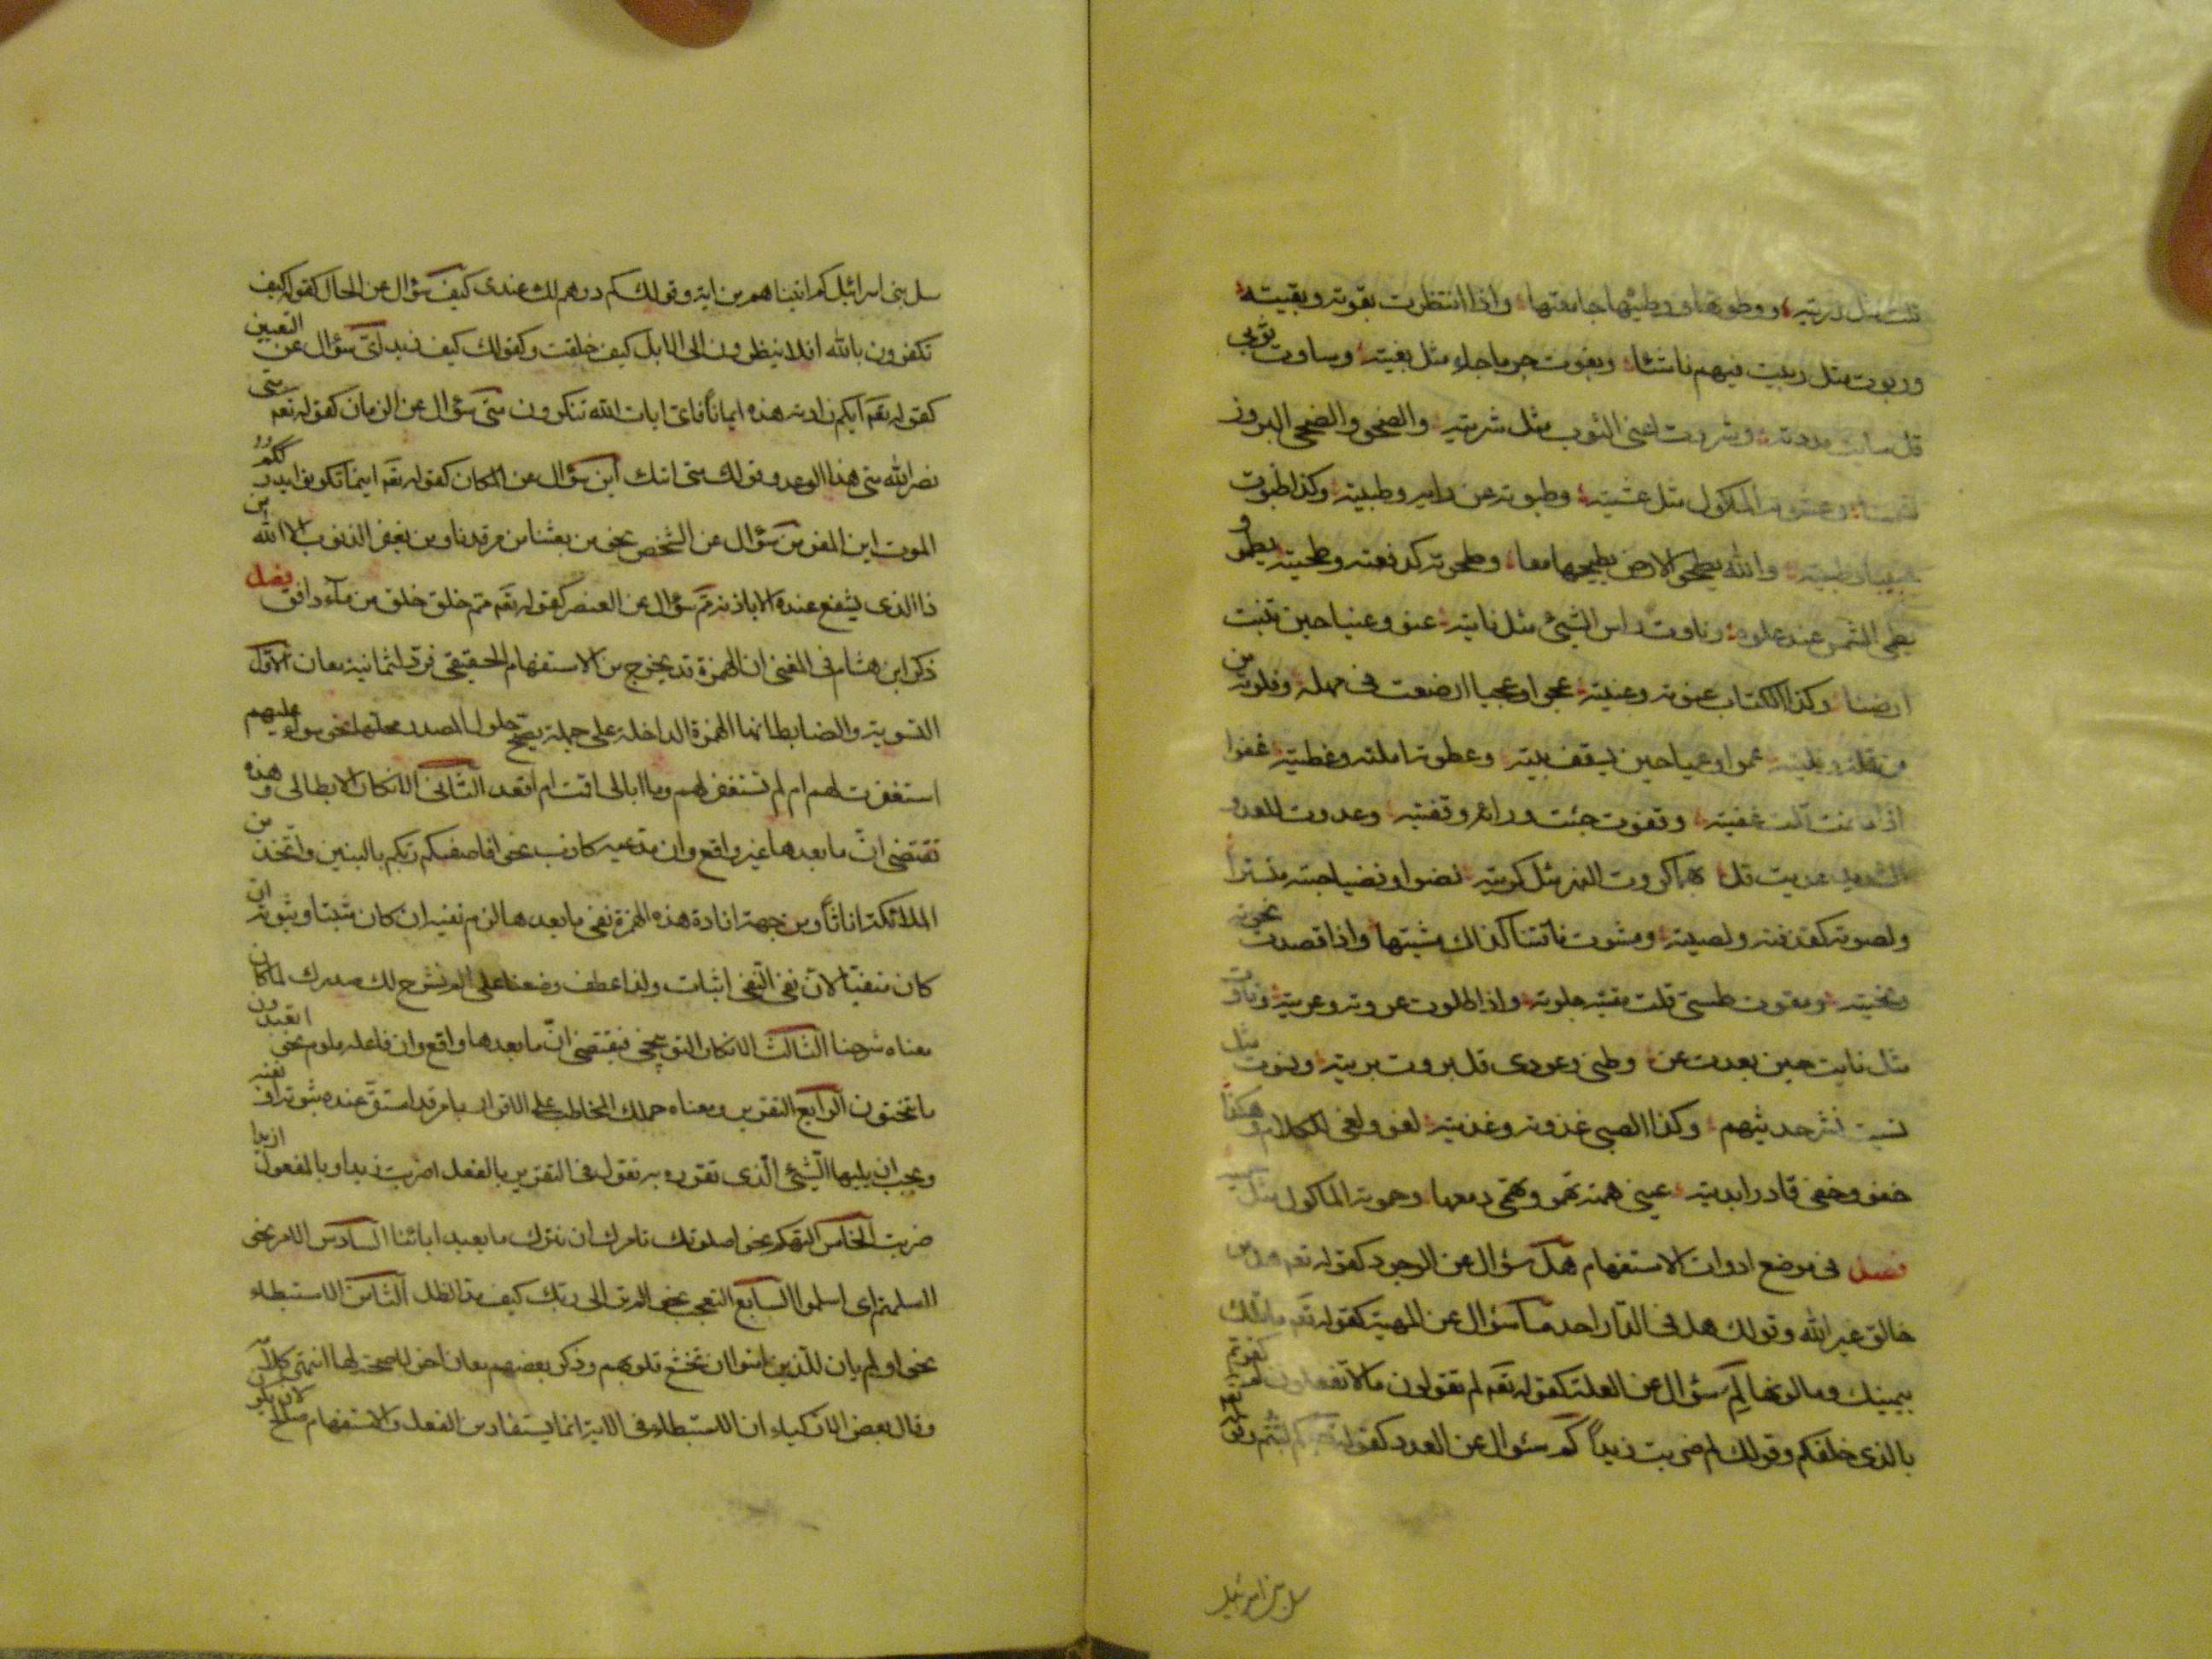 وربوت مثل ربيت فيهم ناشئا وبغوت جرما جاء مثل بغيته وساوت ثوبي
وشروت اعني الثوب مثل شريته والضحو والضحى البروز
المأكول مثل عشيته وطبوته عن رايه وطبيته وكذا طبوت
والله يطحو الارض يطحيها معا وطحوته كدفعته وطحيته يطمو و
يطمى الشمس عند علوه وناوت راس الشيء مثل نايته عنو وعنيا حين تنبت
ارضنا وكذا الكتاب عنوته وعنيته عجوا وعجيا ارضعت في مهله وفلوته من
عموا وعميا حين يسقف بيته وغطوته املته وغطيته غفوا
اذا ما نمت قلت غفيته وقفوت جئت وراءه وقفيته وعدوت للعدو
الشديد عديت قل بهما كروت النهر مثل كريته نضوا ونضيا جبته متسترا
ولصوته كقذفته ولصيته ومشوت ناقتنا كذاك مشيتها واذا قصدت نحوته
ونحيته ومقوت طستي قلت مقيته جلوته واذا طلوت عروته وعريته وناوت
مثل نايت حين بعدت عن وطني وعودي قل بروت بريته ونثوت مثل
نثيت نشر حديثهم وكذا الصبي غذوته وغذيته لغو ولغى للكلام وهكذا
عيني همت تهمو وتهمي دمعها وحموته المأكول مثل
فصل في موضع ادوات الاستفهام هل سؤال عن الوجود كقوله تعم هل من
خالق غير الله وقولك هل في الدار احد ما سؤال عن المهية كقوله تعم ما تلك
بيمينك وما لونها لم سؤال عن العلة كقوله تعم لم تقولون ما لا تفعلون
بالذي خلقكم وقولك لم ضربت زيداً كم سئوال عن العدد كقوله تعم كم لبثتم
سل بني اسرائيل
سل بني اسرائيل كم اتيناهم من اية وقولك كم درهم لك عندى كيف سؤال عن الحال كقوله كيف
تكفرون بالله افلا ينظرون الى الابل كيف خلقت وكقولك كيف زيد اىّ سؤال عن التعيين
كقوله تعم ايكم زادته هذه ايماناً فاى ايات الله تنكرون متى سؤال عن الزمان كقوله تعم متى
نصر الله متى هذا الوعد وقولك متى اتيك اين سؤال عن المكان كقوله تعم اينما تكونوا يدرككم
الموت اين المفر من سؤال عن الشخص نحو من بعثنا من مرقدنا ومن يغفر الذنوب الا الله من
ذا الذى يشفع عنده الا باذنه مم سؤال عن العنصر كقوله تعم مم خلق خلق من مآء دافق فصل
ذكر ابن هشام في المغني ان الهمزة قد يخرج من الاستفهام الحقيقي فترد لثمانية معان الاول
التسوية والضابط انها الهمزة الداخلة على جملة يصح حلول المصدر محلها نحو سواء عليهم
استغفرت لهم ام لم تستغفر لهم وما ابالي اقمت ام اقعد الثاني الانكار الابطالي وهذه
تقتضى انّ ما بعدها غير واقع وان مدعيه كاذب نحو افاصفيكم ربّكم بالبنين واتّخذ من
الملائكة اناثاً ومن جهة افادة هذه الهمزة نفي ما بعدها لزم نفيه ان كان مثبتا وثبوته ان
كان منفيّا لانّ نفي النّفي اثبات ولذا عطف وضعنا على الم نشرح لك صدرك لما كان
معناه شرحنا الثالث الانكار التوبيخي فيقتضى انّ ما بعدها واقع وان فاعله ملوم نحو اتعبدون
ما تنحتون الرابع التقرير ومعناه حملك المخاطب على الاقرار بامر قد استقرّ عنده ثبوته او نفيه
ويجب ان يليها الشّيئ الّذى تقرره به تقول في التقرير بالفعل اضربت زيدا وبالمفعول ازيدا
ضربت الخامس التهكم نحو اصلوتك تامرك ان نترك ما يعبد اباؤنا السادس الامر نحو
ااسلمتم اى اسلموا السابع التعجب نحو الم تر الى ربك كيف مد الظل الثامن الاستبطاء
نحو اولم يان للذين امنوا ان تخشع قلوبهم وذكر بعضهم معان اخر لا صحة لها انتهى كلامه
وقال بعض الاذكياء ان الاستبطاء في الاية انما يستفاد من الفعل والاستفهام